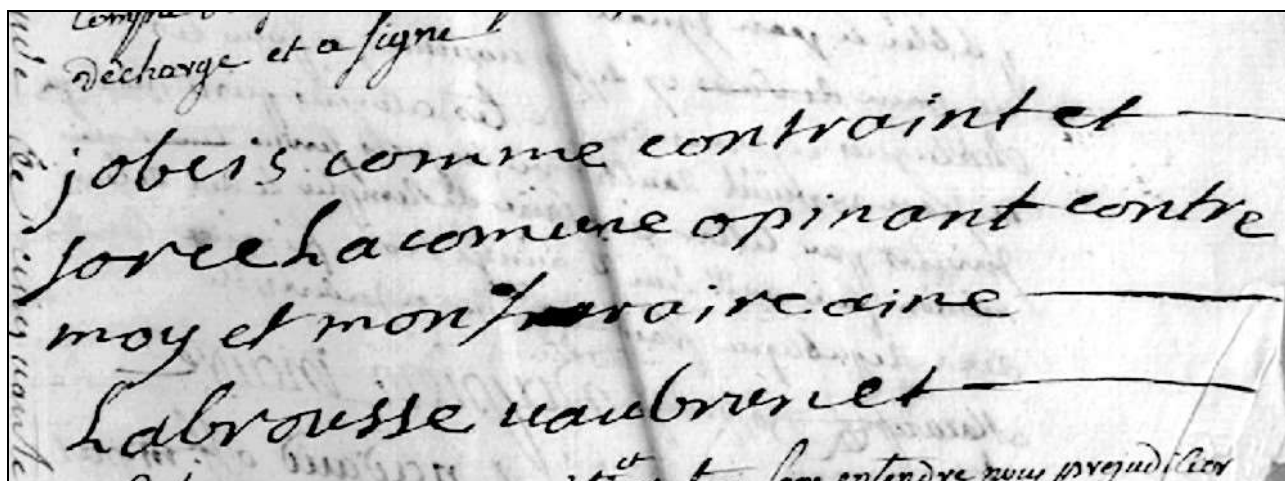 compte
décharge et a signé
j obeis comme contraint et
force La comune opinant contre
moy et mon frairc aine
Labrousse uaubrunet
entendre nous prejudicier